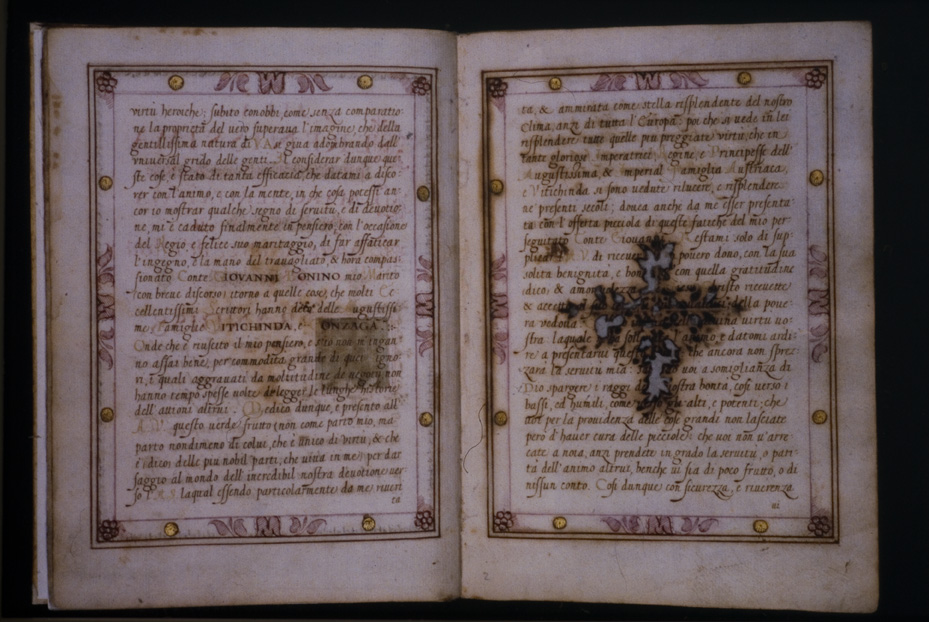 virtù heroiche; subito conobbi, come senza comparatio-
ne la proprietà del uero superaua l'imagine, che della
gentilissima natura di V. A. se giua adombrando dall'
vniuersal grido delle genti. Il considerar dunque que-
ste cose, è stato di tanta efficacia, che datami a disco-
rer con l'animo, e con la mente, in che cosa potessi an-
cor io mostrar qualche segno di seruitù, e di deuotio-
ne, mi è caduto finalmente in pensiero, con l'occasione
del Regio e felice suo maritaggio, di far affaticar
l'ingegno, e la mano del trauagliato, & hora compas-
sionato Conte GIOVANNI BONINO mio Marito
con breue discorso itorno a quelle cose, che molti Ec-
cellentissimi Scrittori hanno detto delle Augustissi-
me Famiglie VITICHINDA, e GONZAGA.
Onde che è riuscito il mio pensiero, e s'io non m'ingan-
no assai bene, per commodità grande di quei signo-
ri, i quali aggrauati da moltitudine de negotij non
hanno tempo spesse uolte de legger le lunghe historie
dell'attioni altrui. Dedico dunque, e presento all'
A. V. questo uerde frutto (non come parto mio, ma
parto nondimeno di colui, che è unico di virtù, & che
è dico) delle più nobil parti, che uiua in me) per dar
saggio al mondo dell'incredibil nostra deuotione uer-
so V. A. S. laqual essendo particolarmente da me riueri
ta
ta, & ammirata come stella risplendente del nostro
Clima, anzi di tutta l'Europa poi che si uede in lei
risplendere tutte quelle più preggiate virtù, che in
tante gloriose Imperatrici, Regine, e Principesse dell'
Augustissima, & Imperial Famiglia Austriaca,
e Vitichinda si sono uedute rilucere, e risplendere
ne presenti secoli; douea anche da me esser presenta-
ta con l'offerta picciola di queste fatiche del mio per-
seguitato Conte Giouanni Restami solo di sup-
plicar V. di riceuere pouero dono, con la sua
solita benignità, e con quella gratitudine
dico, & amoreuolezza Christo riceuette
& accettò della poue-
ra vedoua uina virtù uo-
stra, laquale sola animo, e datomi ardi-
re a presentarui ques che ancora non spre-
zzara la seruitù mia: uoi a somiglianza di
Dio spargere i raggi della uostra bontà, così uerso i
bassi, ed humili, come uerso gli alti, e potenti; che
uoi per la prouidenza delle cose grandi non lasciate
però d'hauer cura delle picciole; che uoi non u'arre-
cate a noia, anzi prendete in grado la seruitù, o pari-
tà dell'animo altrui, benche ui sia di poco frutto, o di
nissun conto. Così dunque con sicurezza, e riuerenza
ui